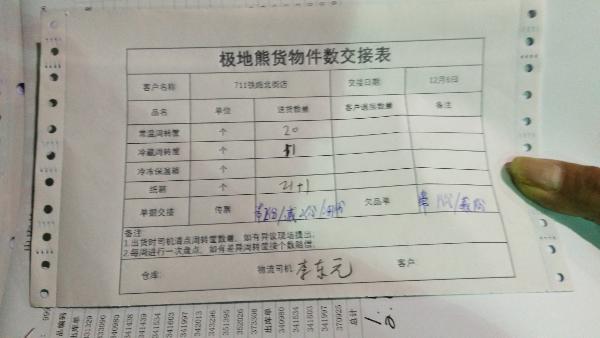 极地熊货物件数交接表
客户名称: 711铁岭北街店 交接日期: 12月6日
品名 单位 送货数量 客户退货数量 备注
常温周转筐 个 20
冷藏周转筐 个
冷冻保温箱 个
纸箱 个 21+1
单据交接 传票 欠品单
备注:
1.出货时司机清点周转筐数量,如有异议现场提出;
2.每周进行一次盘点,如有差异周转筐按个数赔偿。
仓库: 物流司机 李东元 客户
品编码
出库单
331329
333090
340980
341438
341439
341534
341603
341997
342013
343296
351395
352026
373308
出库单
340980
341534
341603
341997
370925
总计